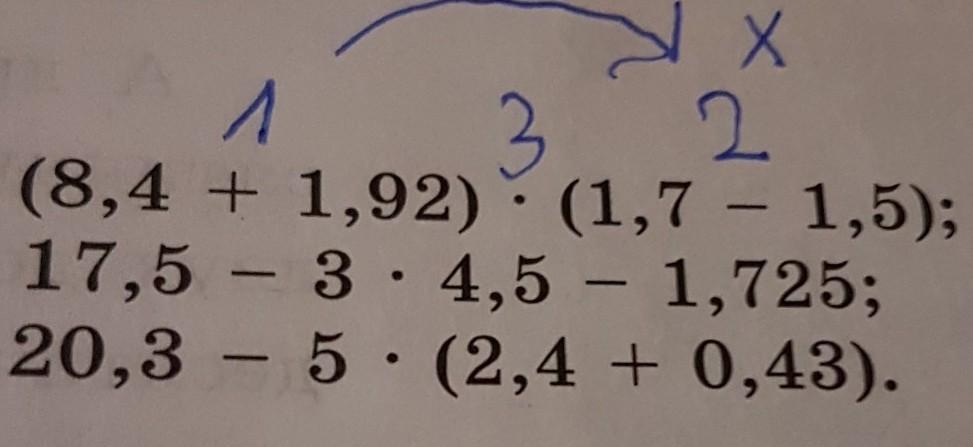 x
1 3 2
(8,4 + 1,92) · (1,7 − 1,5);
17,5 − 3 · 4,5 − 1,725;
20,3 − 5 · (2,4 + 0,43).